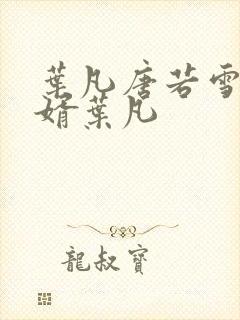 葉凡唐若雪
婿葉凡
龍叔寶